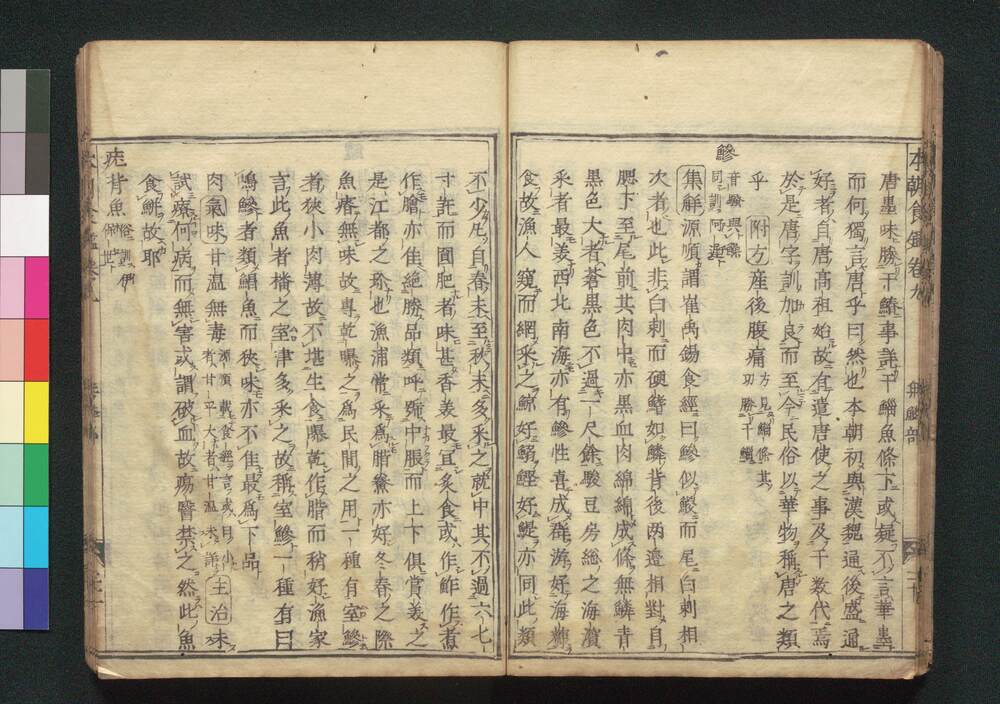 本朝食鑑卷九　無鱗部
唐墨味勝于鱶事詳于鯔魚條下或疑不言華墨
而何獨言唐乎曰然也本朝初與漢魏通後盛通
好者自唐高祖始故有遣唐使之事及于數代焉
於是唐字訓加良而至今民俗以華物稱唐之類
乎 附方 産後腹痛 方見鯔條其功勝于鯔
鰺 音驂與鱢同訓阿遲
集解 源順謂崔禹錫食經曰鰺似鮫而尾白刺相
次者也此非白刺而硬鰭如鱗背後兩邊相對自
腮下至尾前其肉中亦黑血肉綿綿成條無鱗青
黑色大者蒼黑色不過一尺餘駿豆房總之海濱
釆者最美西北南海亦有鰺性喜成群游好海糠
食故漁人窺而網釆之鯨好鰯鰹好鯷亦同此類
不少凡自春末至秋末多釆之就中其不過六七
寸許而圓肥者味甚香美最宜炙食或作鮓作煮
作膾亦佳絕勝品類呼號中脹而上下俱賞美之
是江都之珍也漁浦常釆爲腊鮝亦好冬春之際
魚瘠無味故專乾曝之爲民間之用一種有室鰺
者狹小肉薄故不堪生食曝乾作腊而稍好漁家
言此魚者播之室津多釆之故稱室鰺一種有曰
嶋鰺者類鯧魚而狹味亦不佳最爲下品
肉 氣味 甘温無毒 源順載食經言或曰小者甘平大者甘温未詳 主治 未
試療何病而無害或謂破血故瘍醫禁之然此魚
食鮓故耶
疣背魚 俗訓伊保世